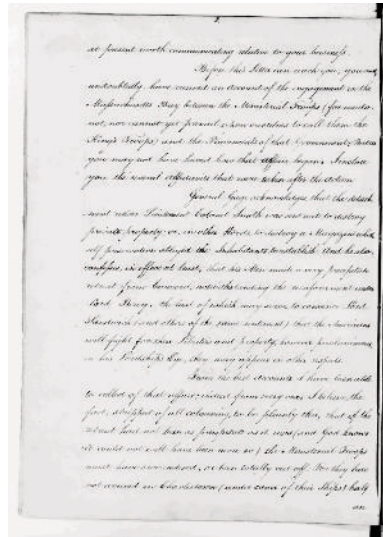 2.
at present worth communicating relative to your business.
Before this Letter can reach you, you must,
undoubtedly, have received an account of the engagement in the
Massachusetts Bay between the Ministerial Troops (for we do
not, nor cannot yet prevail upon ourselves to call them the
King's Troops) and the Provincials of that Government; But as
you may not have heard how that affair began, I inclose
you the several affidavits that were taken after the action.
General Gage acknowledges that the detach-
ment under Lieutenant Colonel Smith was sent out to destroy
private property; or, in other Words to destroy a Magazine which
self preservation obliged the Inhabitants to establish. And he also
confesses, in effect at least, that his Men made a very precipitate
retreat from Concord, notwithstanding the reinforcement under
Lord Piercy, the last of which may serve to convince Lord
Sandwich (and others of the same sentiment) that the Americans
will fight for their Liberties and property, however pusilanimous,
in his Lordship's Eye, they may appear in other respects.
From the best Accounts I have been able
to collect of that affair, indeed from every one, I believe the
fact, stripped of all colouring, to be plainly this, that if the
retreat had not been as precipitate as it was (and God knows
it could not well have been more so) the Ministerial Troops
must have surrendered, or been totally cut off: For they had
not arrived in Charlestown (under cover of their Ships) half
an